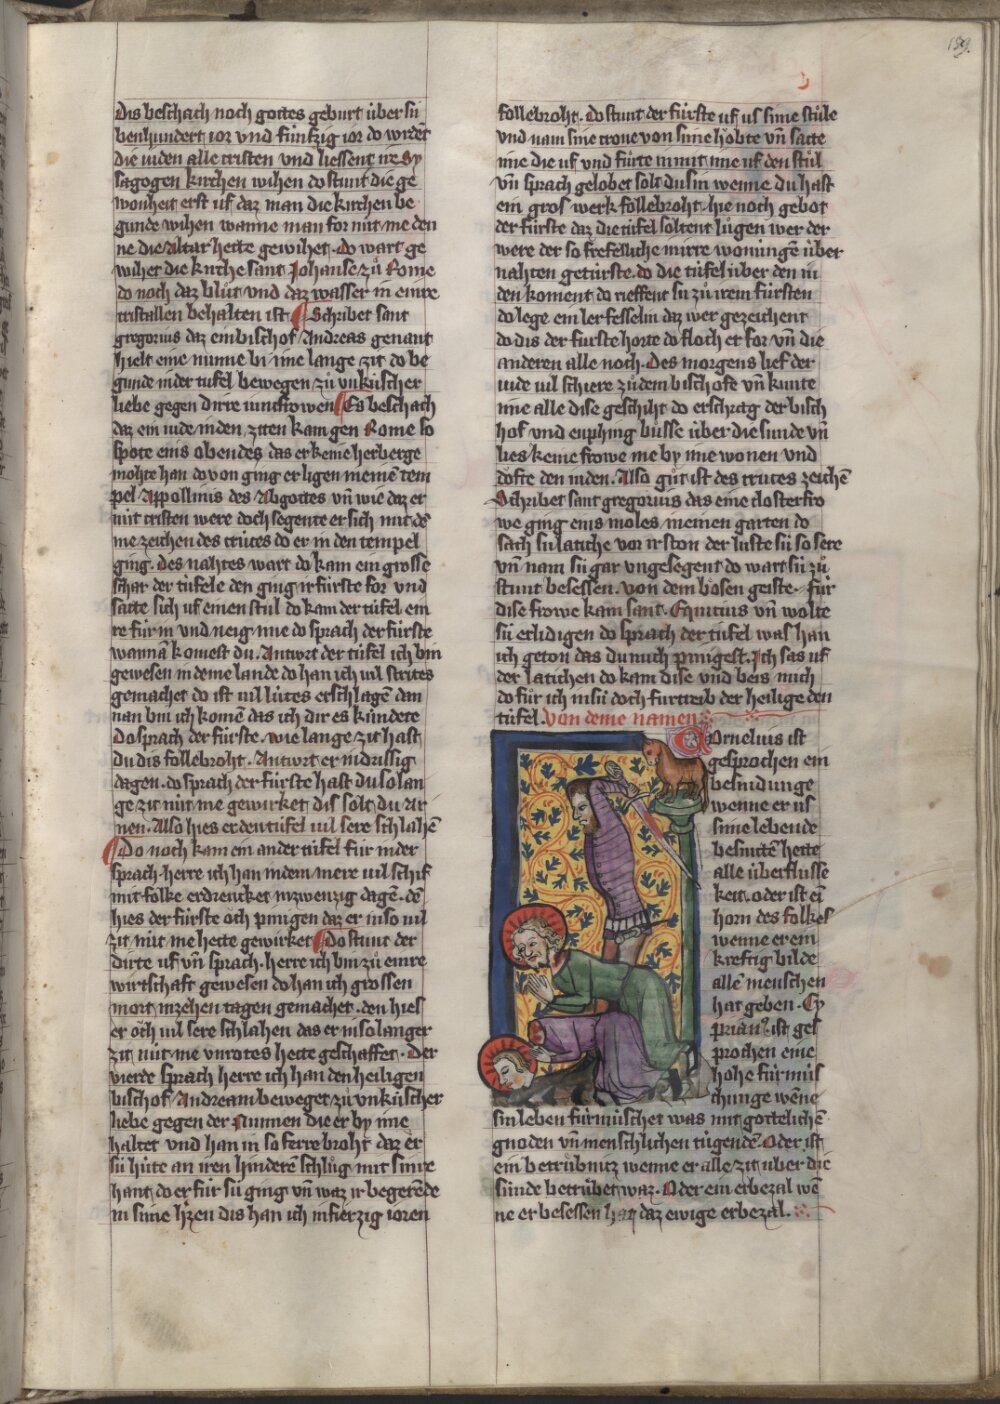 189.
Dis beschach noch gottes geburt über sü
benhundert ior vnd fünfzig ior do wrdēt
die iuden alle cristen vnd liessent ire Sy
nagogen kirchen wihen do stunt die ge
wonheit erst uf daz man die kirchen be
gunde wihen wanne man for nüt me den
ne die Altar hette gewihet. do wart ge
wihet die kirche sant Johanse zů Rome
do noch daz blůt vnd daz wasser in eime
cristallen behalten ist. Schribet sant
gregorius daz ein bischof Andreas genant
hielt eine nunne bi ime lange zit do be
gunde in der tüfel bewegen zů vnküscher
liebe gegen dirre iuncfrowen Es beschach
daz ein iude in den ziten kam gen Rome so
spote eins obendes das er keine herberge
mohte han do von ging er ligen in einē tem
pel Appollinis des Abgottes vn̄ wie daz er
nüt cristen were doch segente er sich mit dē
me zeichen des crüces do er in den tempel
ging. des nahtes wart do kam ein grosse
schar der tüfele den ging ir fürste for vnd
satte sich uf einen stůl do kam der tüfel ein
re für in vnd neig ime do sprach der fürste
wannā komest du. Antwrt der tüfel ich bin
gewesen in deme lande do han ich vil strites
gemachet do ist vil lütes erschlagē dan
nan bin ich komē das ich dir es kündete
Do sprach der fürste. wie lange zit hast
du dis follebroht. Antwrt er in drissig
dagen. do sprach der fürste hast du so lan
ge zit nüt me gewirket dis solt du ar
nen. Also hies er den tüfel vil sere schlahē
Do noch kam ein ander tüfel für in der
sprach. herre ich han in dem mere vil schif
mit folke erdrencket in zwenzig dagē. dē
hies der fürste och pinigen daz er in so vil
zit nüt me hette gewirket Do stunt der
dirte uf vn̄ sprach. herre ich bin zů eime
wirtschaft gewesen do han ich grossen
mort in zehen tagen gemachet. den hies
er och vil sere schlahen das er in so langer
zit nüt me vnrotes hette geschaffet. Der
vierde sprach herre ich han den heiligen
bischof Andream beweget zů vnküscher
liebe gegen der Nunnen die er by ime
haltet vnd han in so ferre broht daz er
sü hüte an iren hinderē schlůg mit sinre
hant do er für sü ging vn̄ waz ir begerēde
in sime h'zen dis han ich in fierzig ioren
follebroht. Do stunt der fürste uf us sime stůle
vnd nam sine crone von sime hobte vn̄ satte
ime die uf vnd fürte in mit ime uf den stůl
vn̄ sprach gelobet solt du sin wenne du hast
ein gros werk follebroht. hie noch gebot
der fürste daz die tüfel soltent lůgen wer der
were der so frefelliche inirre woningē über
nahten getürste. do die tüfel über den iu
den koment do rieffent sü zů irem fürsten
do lege ein ler fesselin daz wer gezeichent
do dis der fürste horte do floch er for vn̄ die
anderen alle noch. Des morgens lief der
iude vil schiere zů dem bischofe vn̄ kunte
ime alle dise geschiht do erschrag der bisch
hof vnd enphing bůsse über die sünde vn̄
lies keine frowe me by ime wonen vnd
dofte den iuden. Also gůt ist des crüces zeichē
Schribet sant gregorius das eine closterfro
we ging eins moles in einen garten do
sach sü latiche vor ir ston der luste sü so sere
vn̄ nam sü gar vngesegent do wart sü zů
stunt besessen. von dem bösen geiste. Für
dise frowe kam sant. Equitius vn̄ wolte
sü erlidigen do sprach der tüfel was han
ich geton das du mich pinigest. Ich sas uf
der latichen do kam dise vnd beis mich
do für ich in sü doch furtreib der heilige den
tüfel. Von deme namen
Cornelius ist
gesprochen ein
besnidunge
wenne er us
sime lebende
besnitē hette
alle überflusse
keit. oder ist eī
horn des folkes
wenne er ein
kreftig bilde
allē menschen
hat geben. Cy
prianꝰ. ist ges
prochen eine
hohe fürmüs
chunge wēne
sin leben fürmüschet was mit göttelichē
gnoden vn̄ menschlichen tügendē. Oder ist
ein betrůbniz wenne er alle zit über die
sünde betrübet waz. Oder ein erbezal wē
ne er besessen hat daz ewige erbezal.